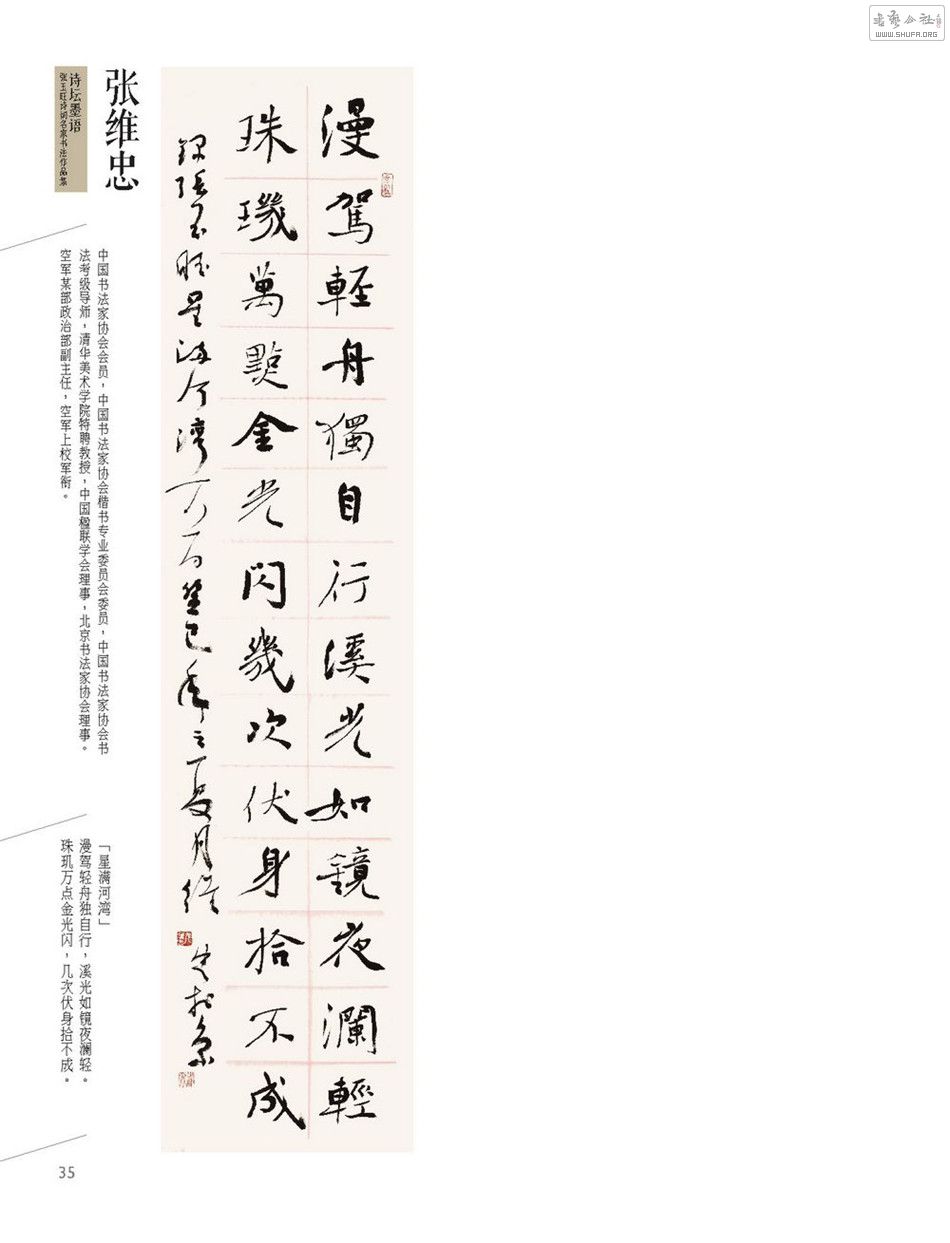 WWW.SHUFA.ORG
张维忠
诗坛墨语
张玉旺诗词名家书法作品集
漫駕輕舟獨自行溪光如鏡夜瀾輕
珠璣萬點金光閃幾次伏身拾不成
中国书法家协会会员，中国书法家协会楷书专业委员会委员，中国书法家协会书
法考级导师，清华美术学院特聘教授，中国楹联学会理事，北京书法家协会理事。
空军某部政治部副主任，空军上校军衔。
「星满河湾」
漫驾轻舟独自行，溪光如镜夜澜轻。
珠玑万点金光闪，几次伏身拾不成。
35